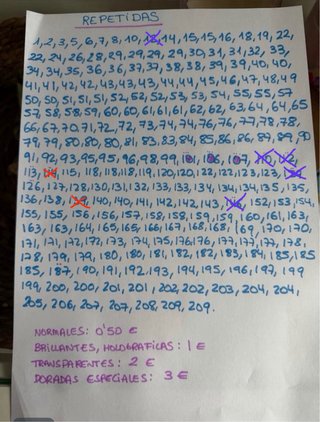 REPETIDAS
1, 2, 3, 5, 6, 7, 8, 10, 14, 15, 15, 16, 18, 19, 22,
22, 24, 26, 28, 29, 29, 29, 29, 30, 31, 31, 32, 33,
34, 34, 35, 36, 36, 37, 37, 38, 38, 39, 39, 40, 40,
41, 41, 42, 42, 43, 43, 43, 44, 44, 45, 46, 47, 48, 49
50, 50, 51, 51, 51, 52, 52, 52, 53, 53, 54, 55, 55, 57
57, 58, 58, 59, 60, 60, 61, 61, 62, 62, 63, 64, 64, 65
66, 67, 70, 71, 72, 72, 73, 74, 74, 76, 76, 77, 78, 78,
79, 79, 80, 80, 80, 81, 83, 83, 84, 85, 86, 86, 89, 89, 90
91, 92, 93, 95, 95, 96, 98, 99, 101, 106, 107,
113, 115, 118, 118, 118, 119, 120, 120, 122, 122, 123, 123,
126, 127, 128, 130, 131, 132, 133, 133, 134, 134, 134, 135, 135,
136, 138, 140, 140, 141, 142, 142, 143, 152, 153, 154
155, 155, 156, 156, 157, 158, 158, 159, 159, 160, 161, 163,
163, 163, 164, 165, 165, 166, 167, 168, 168, 169, 170, 170,
171, 171, 172, 172, 173, 174, 175, 176, 176, 177, 177, 177, 178,
178, 179, 179, 180, 180, 181, 182, 182, 183, 184, 185, 185
185, 187, 190, 191, 192, 193, 194, 195, 196, 197, 199
199, 200, 200, 201, 201, 202, 202, 203, 204, 204,
205, 206, 207, 207, 208, 209, 209.
NORMALES: 0'50 €
BRILLANTES, HOLOGRAFICAS: 1 €
TRANSPARENTES: 2 €
DORADAS ESPECIALES: 3 €